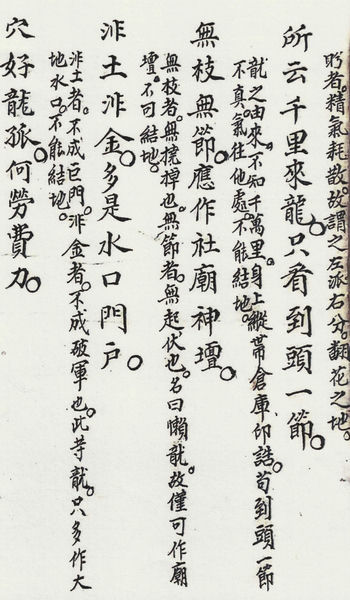 䏿者。精氣耗散。故謂之左派右分。翻花之地。
所云千里來龍。只看到頭一節。
龍之由來。不知千萬里。身上縱帶倉庫印誥。苟到頭一節
不真。氣往他處。不能結地。
無枝無節。應作社廟神壇。
無枝者。無橈棹也。無節者。無起伏也。名曰懶龍。故僅可作廟
壇。不可結地。
非土非金。多是水口門戶。
非土者。不成巨門。非金者。不成破軍也。此等龍。只多作大
地水口。不能結地。
穴好龍孤。何勞費力。